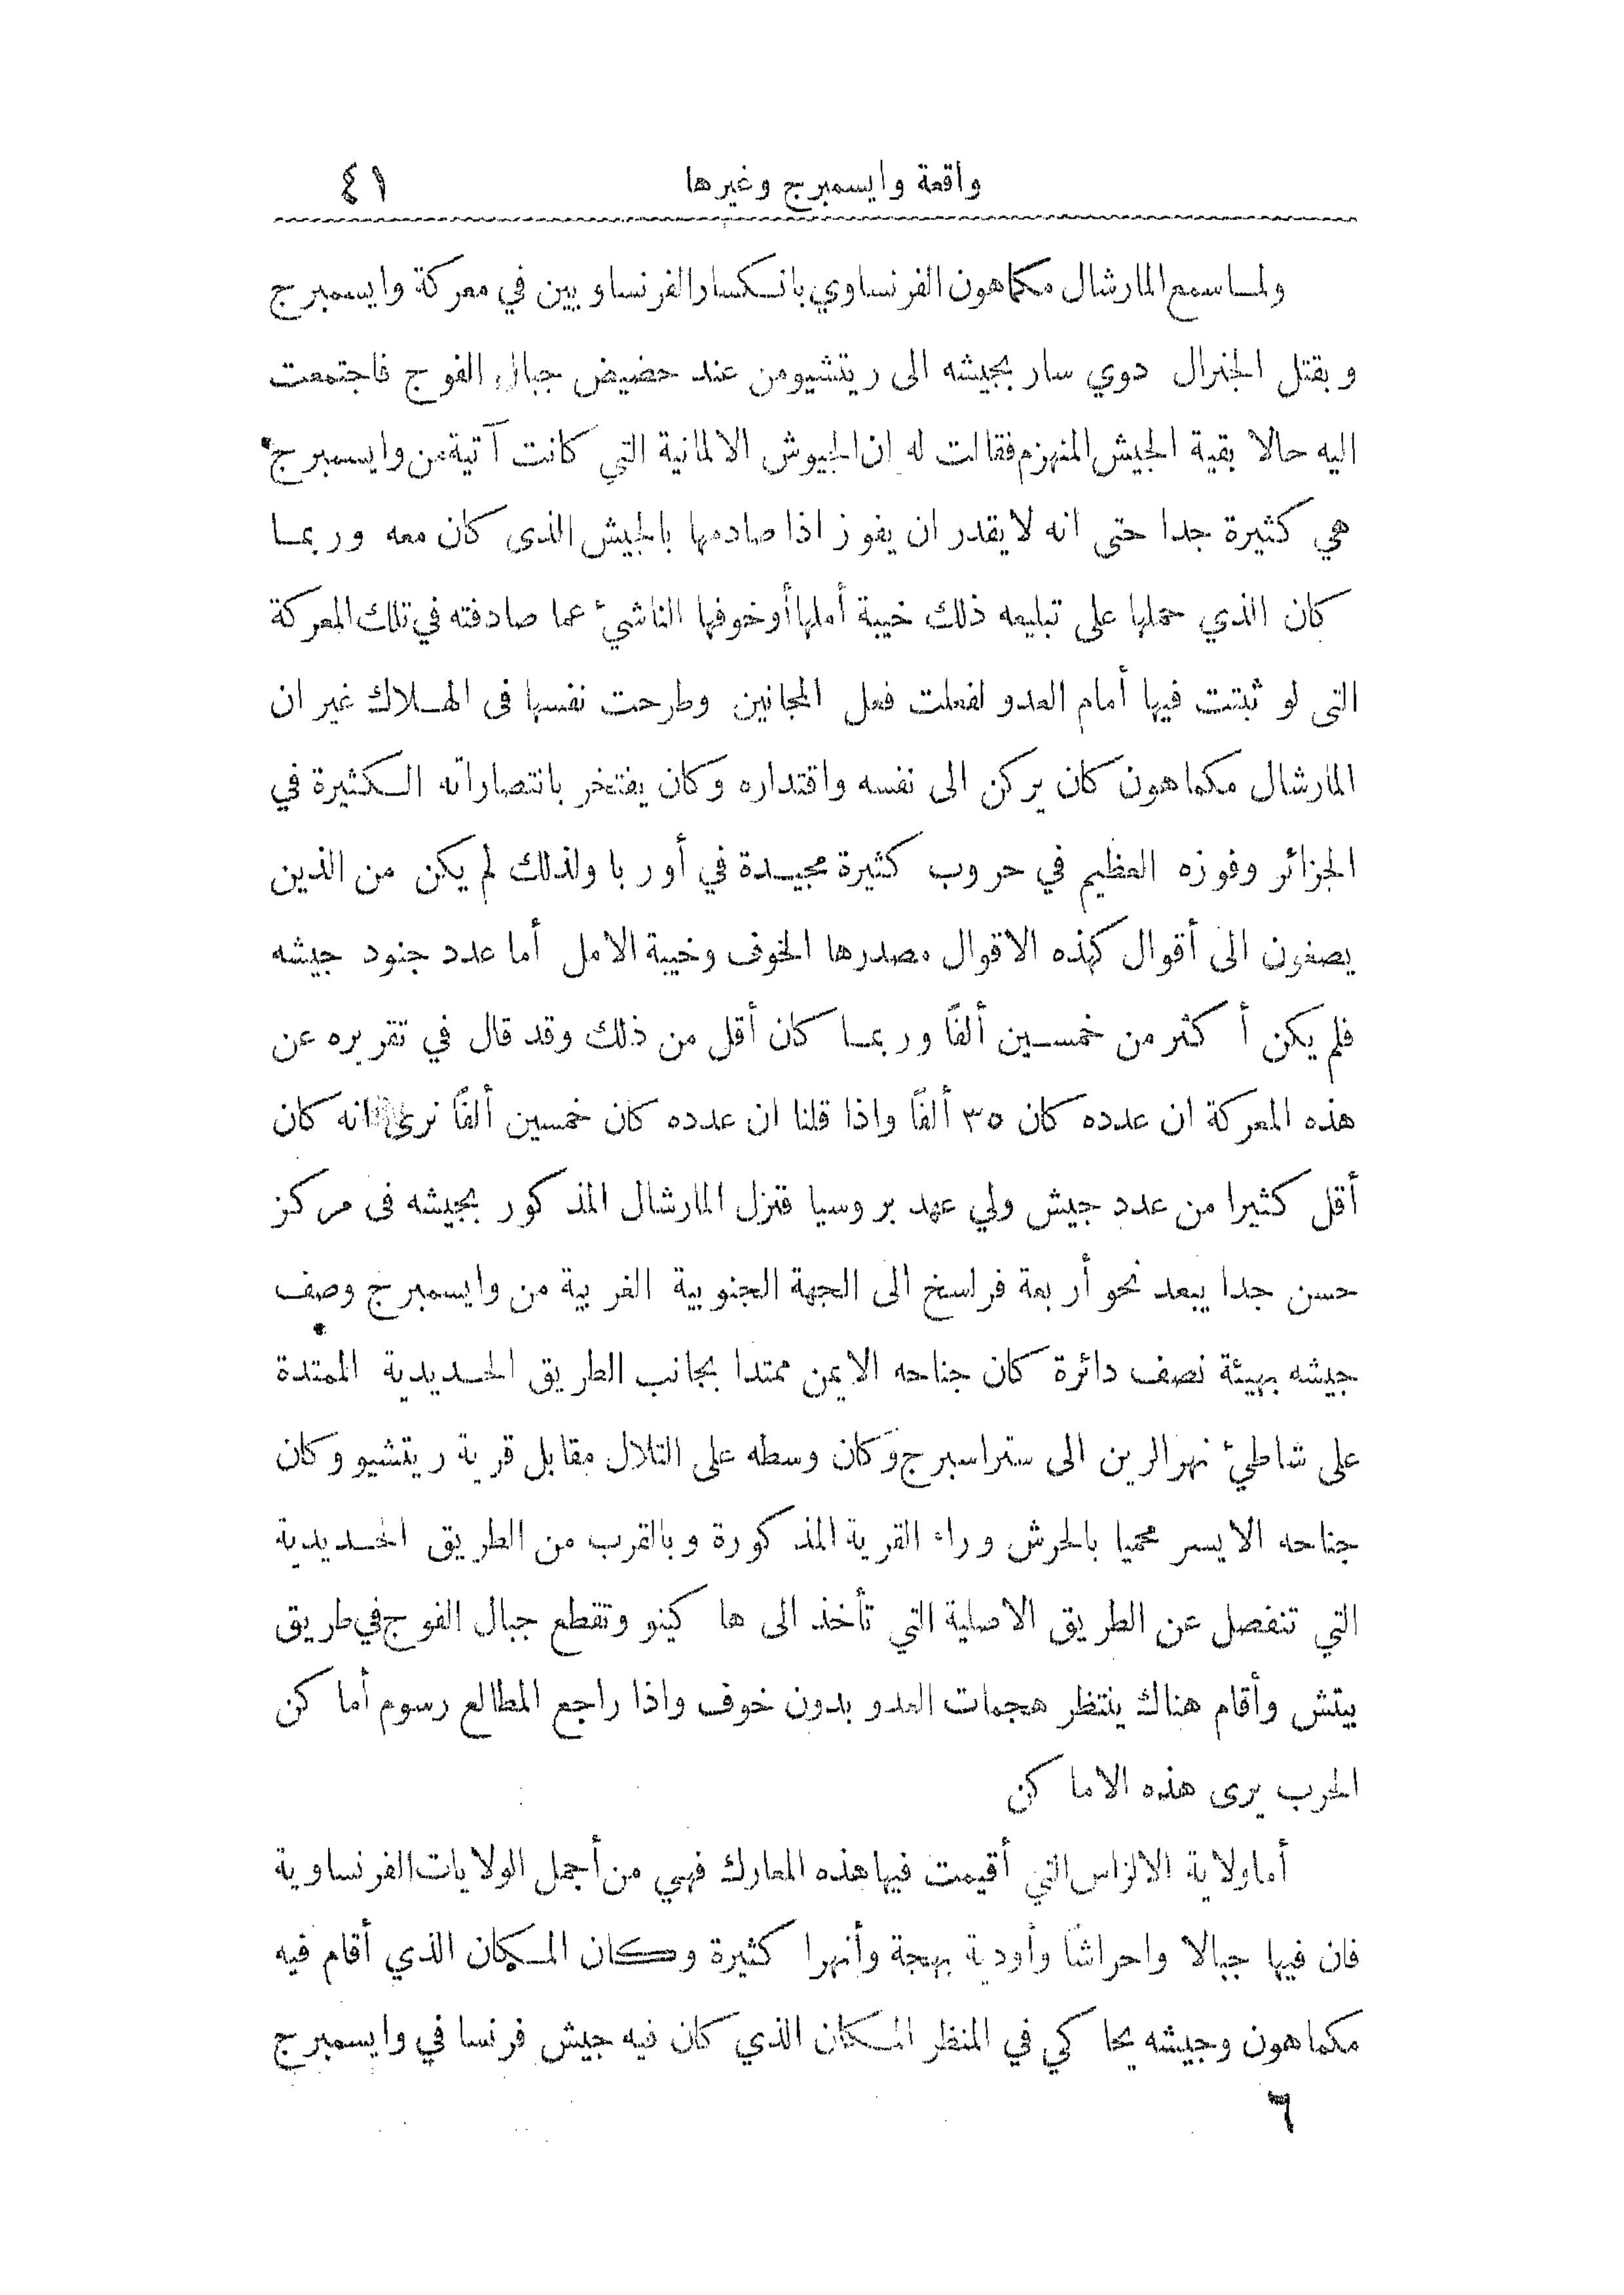 واقعة وايسمبرج وغيرها ٤١
ولما سمع المارشال مكماهون الفرنساوي بانكسار الفرنساويين في معركة وايسمبرج
وبقتل الجنرال دوي سار بجيشه الى ريتشيومن عند حضيض جبال الفوج فاجتمعت
اليه حالا بقية الجيش المنهزم فقالت له ان الجيوش الالمانية التي كانت آتية من وايسمبرج
هي كثيرة جدا حتى انه لايقدر ان يفوز اذا صادمها بالجيش الذى كان معه وربما
كان الذي حملها على تبليعه ذلك خيبة أملها أوخوفها الناشيء عما صادفته في تلك المعركة
التى لو ثبتت فيها أمام العدو لفعلت فعل المجانين وطرحت نفسها فى الهلاك غير ان
المارشال مكماهون كان يركن الى نفسه واقتداره وكان يفتخر بانتصاراته الكثيرة في
الجزائر وفوزه العظيم في حروب كثيرة مجيدة في أوربا ولذلك لم يكن من الذين
يصغون الى أقوال كهذه الاقوال مصدرها الخوف وخيبة الامل أما عدد جنود جيشه
فلم يكن أكثر من خمسين ألفاً وربما كان أقل من ذلك وقد قال في تقريره عن
هذه المعركة ان عدده كان ٣٥ ألفاً واذا قلنا ان عدده كان خمسين ألفاً نرى انه كان
أقل كثيرا من عدد جيش ولي عهد بروسيا فنزل المارشال المذكور بجيشه فى مركز
حسن جدا يبعد نحو أربعة فراسخ الى الجهة الجنوبية الغربية من وايسمبرج وصف
جيشه بهيئة نصف دائرة كان جناحه الايمن ممتدا بجانب الطريق الحديدية الممتدة
على شاطيء نهر الرين الى ستراسبرج وكان وسطه على التلال مقابل قرية ريتشيو وكان
جناحه الايسر محميا بالحرش وراء القرية المذكورة وبالقرب من الطريق الحديدية
التي تنفصل عن الطريق الاصلية التي تأخذ الى هاكينو وتقطع جبال الفوج في طريق
بيتش وأقام هناك ينتظر هجمات العدو بدون خوف واذا راجع المطالع رسوم أماكن
الحرب يرى هذه الاماكن
أما ولاية الالزاس التي أقيمت فيها هذه المعارك فهي من أجمل الولايات الفرنساوية
فان فيها جبالا واحراشاً وأودية بهجة وأنهرا كثيرة وكان المكان الذي أقام فيه
مكماهون وجيشه يحاكي في المنظر المكان الذي كان فيه جيش فرنسا في وايسمبرج
٦